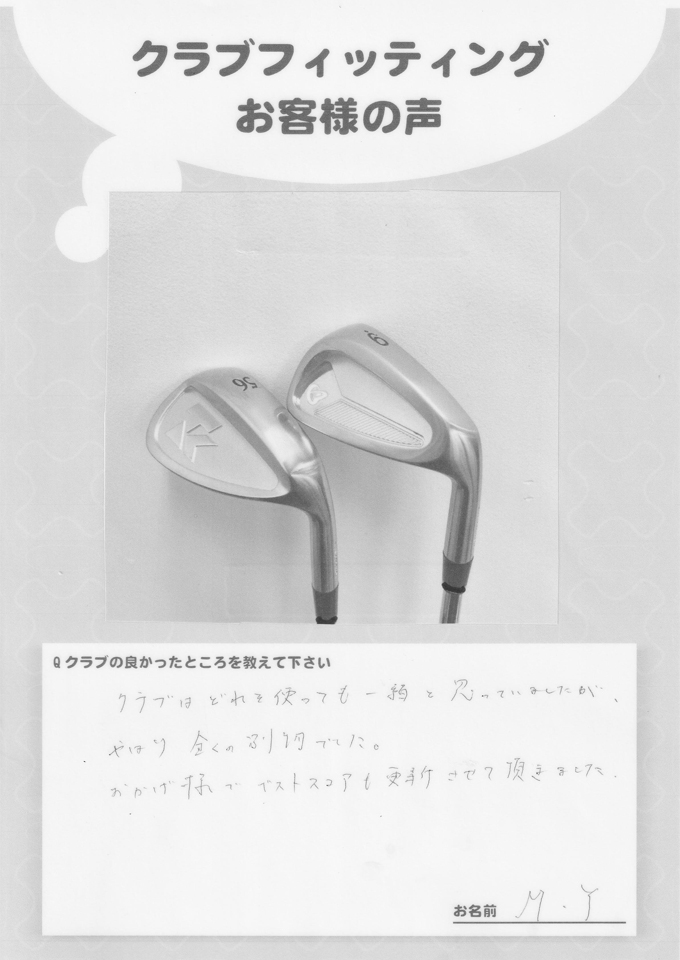 クラブフィッティング
お客様の声
56
9.
Q クラブの良かったところを教えて下さい
クラブはどれを使っても一緒と思っていましたが、
やはり全くの別物でした。
おかげ様でベストスコアも更新させて頂きました。
お名前 M.Y